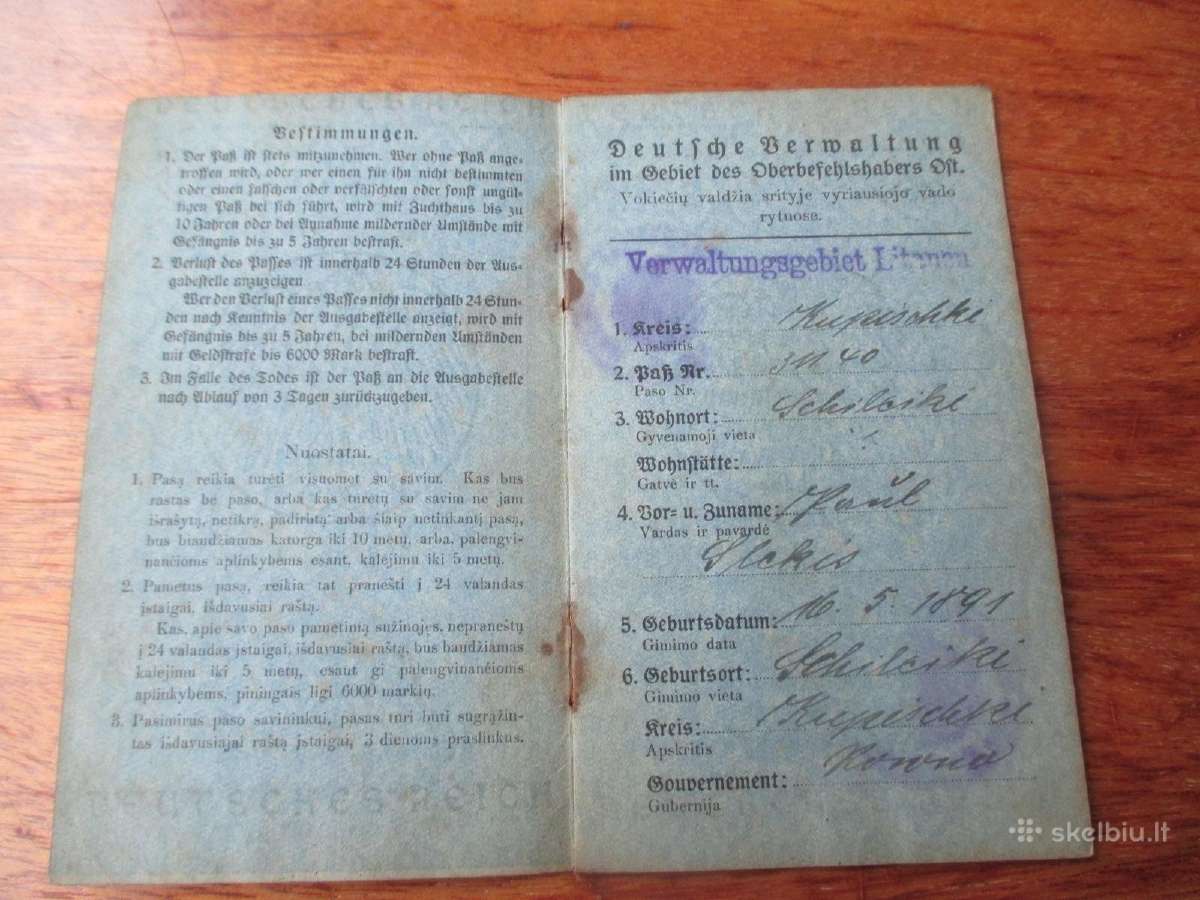 Bestimmungen.
1. Der Paß ist stets mitzunehmen. Wer ohne Paß ange-
troffen wird, oder wer einen für ihn nicht bestimmten
oder einen falschen oder verfälschten oder sonst ungül-
tigen Paß bei sich führt, wird mit Zuchthaus bis zu
10 Jahren oder bei Annahme mildernder Umstände mit
Gefängnis bis zu 5 Jahren bestraft.
2. Verlust des Passes ist innerhalb 24 Stunden der Aus-
gabestelle anzuzeigen.
Wer den Verlust eines Passes nicht innerhalb 24 Stun-
den nach Kenntnis der Ausgabestelle anzeigt, wird mit
Gefängnis bis zu 5 Jahren, bei mildernden Umständen
mit Geldstrafe bis 6000 Mark bestraft.
3. Im Falle des Todes ist der Paß an die Ausgabestelle
nach Ablauf von 3 Tagen zurückzugeben.
Nuostatai.
1. Pasą reikia turėti visuomet su savim. Kas bus
rastas be paso, arba kas turėtų su savim ne jam
išrašytą, netikrą, padirbtą arba šiaip netinkantį pasą,
bus baudžiamas katorga iki 10 metų, arba, palengvi-
nančioms aplinkybėms esant, kalėjimu iki 5 metų.
2. Pametus pasą, reikia tat pranešti į 24 valandas
įstaigai, išdavusiai raštą.
Kas, apie savo paso pametimą sužinojęs, nepraneštų
į 24 valandas įstaigai, išdavusiai raštą, bus baudžiamas
kalėjimu iki 5 metų, esant gi palengvinančioms
aplinkybėms, piningais ligi 6000 markių.
3. Pasimirus paso savininkui, pasas turi būti sugrąžin-
tas išdavusiajai raštą įstaigai, 3 dienoms praslinkus.
DEUTSCHES REICH
Deutsche Verwaltung
im Gebiet des Oberbefehlshabers Ost.
Vokiečių valdžia srityje vyriausiojo vado
rytuose.
Verwaltungsgebiet Litauen
1. Kreis: Kupischki
Apskritis
2. Paß Nr. 31140
Paso Nr.
3. Wohnort: Schilciki
Gyvenamoji vieta
Wohnstätte:
Gatvė ir tt.
4. Vor= u. Zuname: Paul
Vardas ir pavardė
Slekis
5. Geburtsdatum: 16. 5. 1891
Gimimo data
6. Geburtsort: Schilciki
Gimimo vieta
Kreis: Kupischki
Apskritis
Gouvernement: Kowno
Gubernija
skelbiu.lt